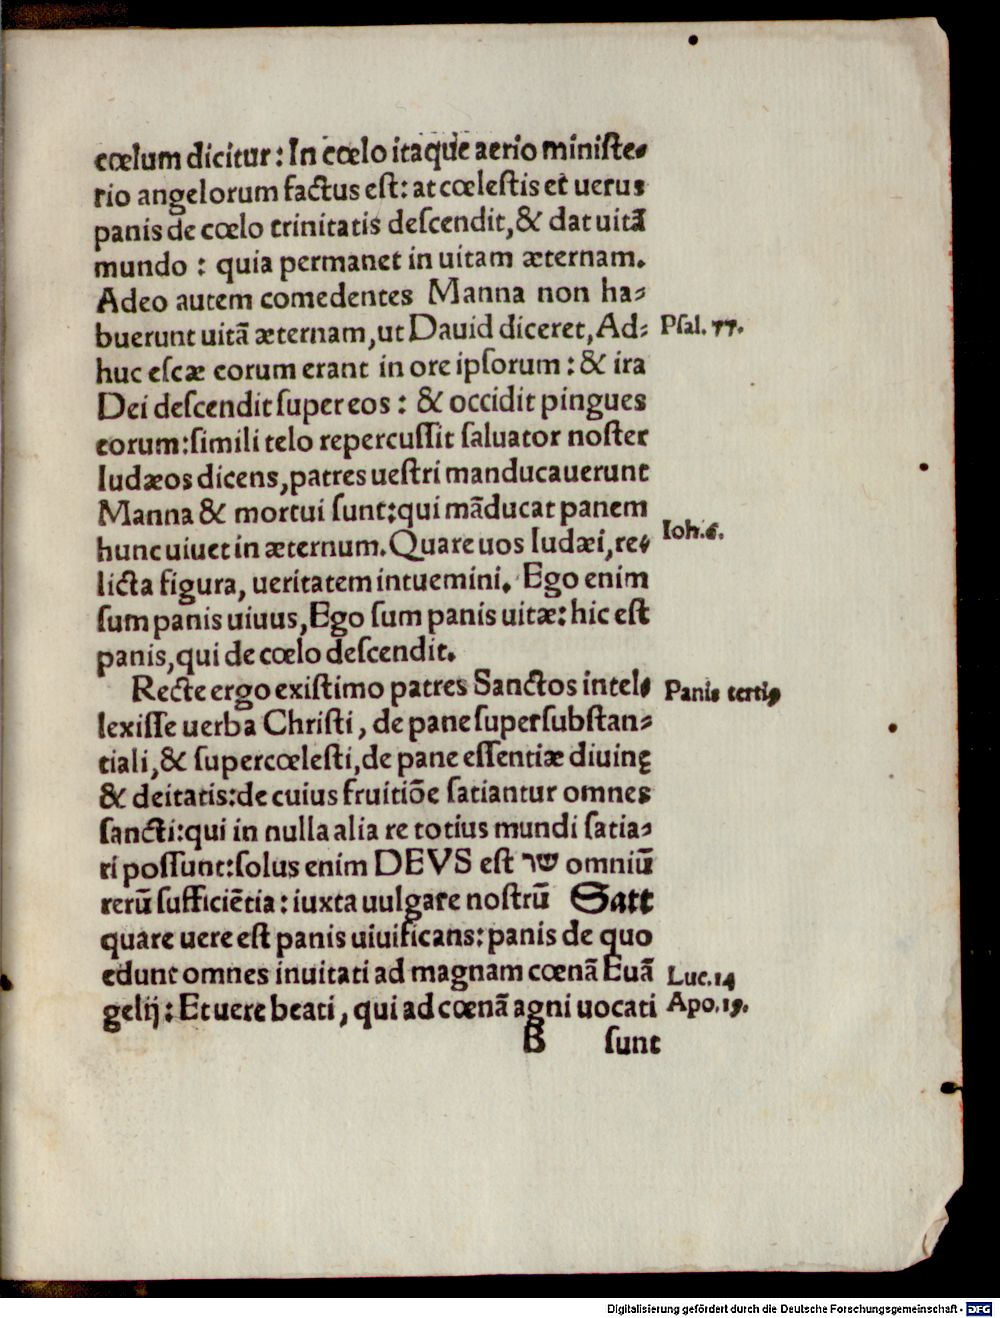 cœlum dicitur: In cœlo itaque aerio ministe-
rio angelorum factus est: at cœlestis et uerus
panis de cœlo trinitatis descendit, & dat uitā
mundo : quia permanet in uitam æternam.
Adeo autem comedentes Manna non ha-
buerunt uitā æternam, ut Dauid diceret, Ad-
Psal. 77.
huc escæ eorum erant in ore ipsorum: & ira
Dei descendit super eos: & occidit pingues
eorum: simili telo repercussit saluator noster
Iudæos dicens, patres uestri manducauerunt
Manna & mortui sunt: qui māducat panem
Ioh. 6.
hunc uiuet in æternum. Quare uos Iudæi, re-
licta figura, ueritatem intuemini. Ego enim
sum panis uiuus, Ego sum panis uitæ: hic est
panis, qui de cœlo descendit.
Recte ergo existimo patres Sanctos intel-
Panis tertiꝰ
lexisse uerba Christi, de pane supersubstan-
tiali, & supercœlesti, de pane essentiæ diuinę
& deitatis: de cuius fruitiōe satiantur omnes
sancti: qui in nulla alia re totius mundi satia-
ri possunt: solus enim DEVS est שר omniū
rerū sufficiētia: iuxta uulgare nostrū Satt
quare uere est panis uiuificans: panis de quo
edunt omnes inuitati ad magnam cœnā Euā
Luc. 14
gelij: Et uere beati, qui ad cœnā agni uocati
Apo. 19.
B sunt
Digitalisierung gefördert durch die Deutsche Forschungsgemeinschaft - DFG